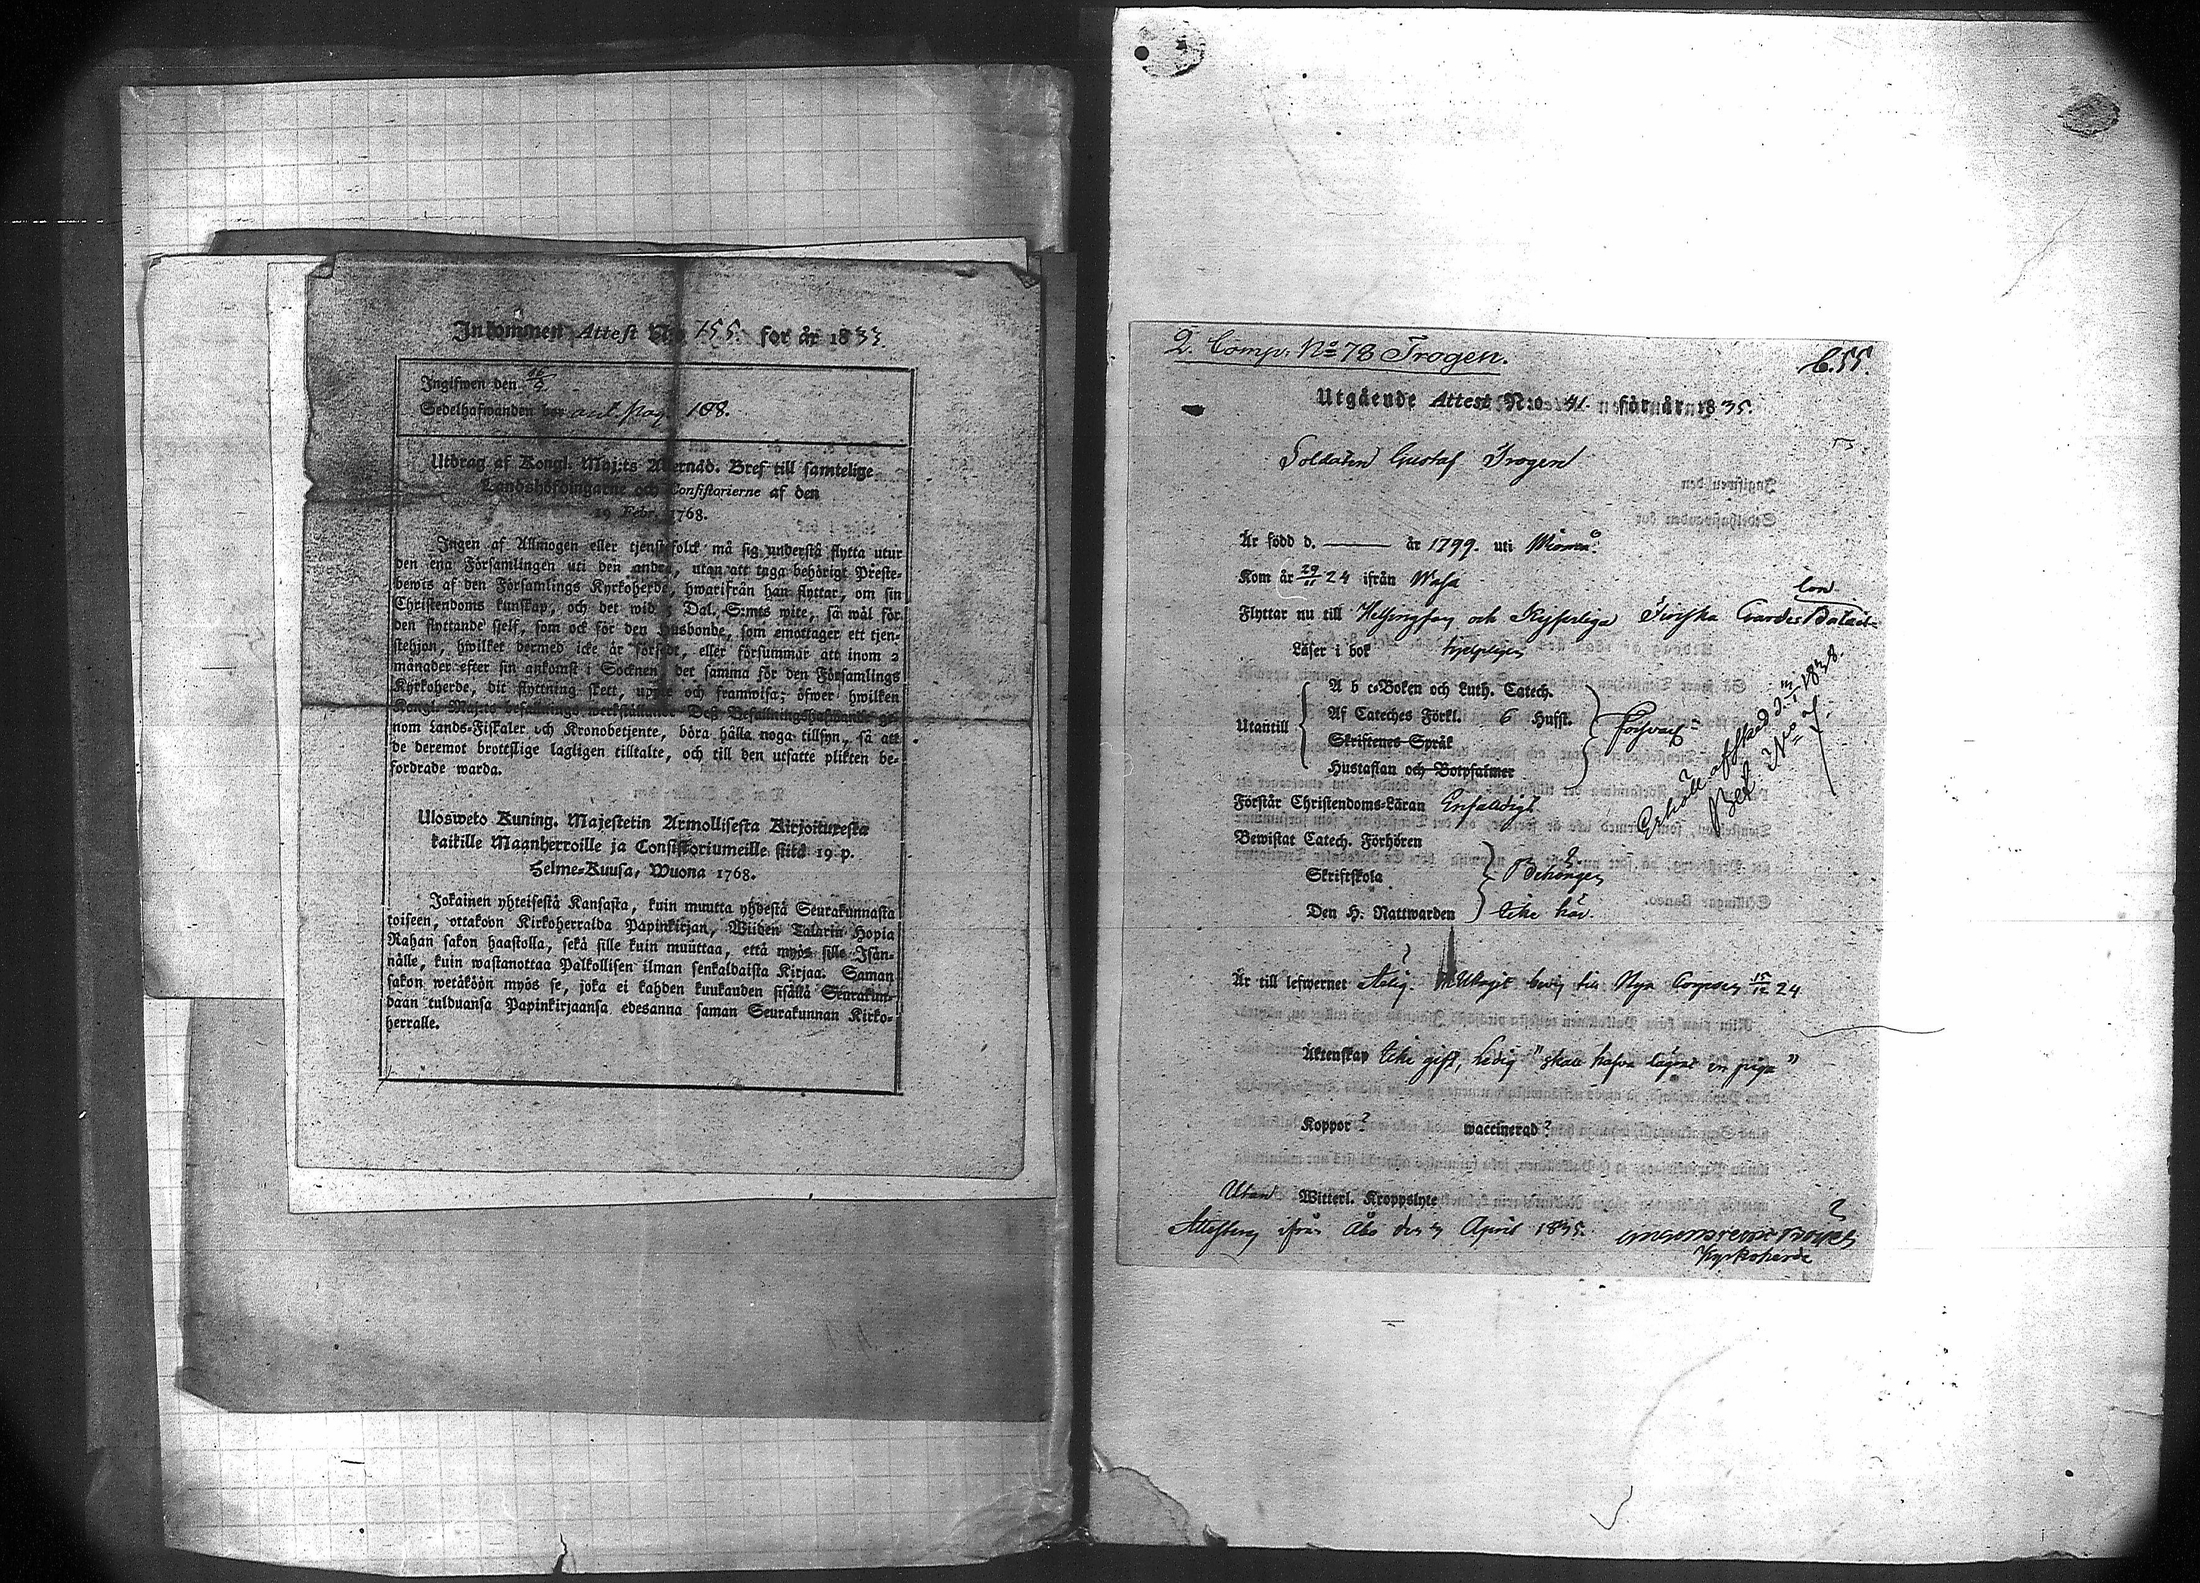 Inkommen Attest N:o 755. för år 1833.
Ingifwen den 26/9
Sedelhafwanden bor ant. pag. 108.
Utdrag af Kongl. Maj:ts Allernåd. Bref till samtelige
Landshöfdingarne och Consistorierne af den
19 Febr. 1768.
Ingen af Allmogen eller tjenstefolck må sig understå flytta utur
den ena Församlingen uti den andra, utan att taga behörigt Preste-
bewis af den Församlings Kyrkoherde, hwarifrån han flyttar, om sin
Christendoms kunskap, och det wid 5 Dal. S:mts wite, så wäl för
den flyttande sjelf, som ock för den Husbonde, som emottager ett tjen-
stehjon, hwilket dermed icke är försedt, eller försummar att inom 2
månader efter sin ankomst i Socknen, det samma för den Församlings
Kyrkoherde, dit flyttning skett, uppte och framwisa; öfwer hwilken
Kongl. Maj:ts befallnings werkställande Deß Befallningshafwande ge-
nom Lands-Fiskaler och Kronobetjente, böra hålla noga tillsyn, så att
de deremot brottslige lagligen tilltalte, och till den utsatte plikten be-
fordrade warda.
Ulosweto Kuning. Majestetin Armollisesta Kirjoituxesta
kaikille Maanherroille ja Consistoriumeille siitä 19 p.
Helme-Kuusa, Wuona 1768.
Jokainen yhteisestä Kansasta, kuin muutta yhdestä Seurakunnasta
toiseen, ottakoon Kirkoherralda Papinkirjan, Wiiden Talarin Hopia
Rahan sakon haastolla, sekä sille kuin muuttaa, että myös sille Isän-
nälle, kuin wastanottaa Palkollisen ilman senkaldaista Kirjaa. Saman
sakon wetäköön myös se, joka ei kahden kuukauden sisällä Seurakun-
daan tulduansa Papinkirjaansa edesanna saman Seurakunnan Kirko-
herralle.
2. Comp: No 78 Trogen.
C.55.
Utgående Attest N:o 41. för år 1835.
Soldaten Gustaf Trogen
Är född d. —— år 1799. uti
Kom år 29/11 24 ifrån Wasa
lon
Flyttar nu till Helsingfors och Kejserliga Finska Gardes Batail-
Läser i bok hjelpligen
Utantill
A b c-Boken och Luth. Catech.
Af Cateches Förkl. 6 Hufst.
Skriftenes Språk
Hustaflan och Botpsalmer
försvarl
Erhöll afsked d. 1838.
Förstår Christendoms-Läran Enfaldigt
Bewistat Catech. Förhören
Skriftskola
Den H. Nattwarden
Behörigen
icke här
Är till lefwernet bevis till Nya Corpsen 15/12 24
Äktenskap icke gift, ledig "skall hafva lägrat en piga"
Koppor? waccinerad?
Utan Witterl. Kroppslyte
Attesteras ifrån Åbo den April 1835.
Kyrkoherde